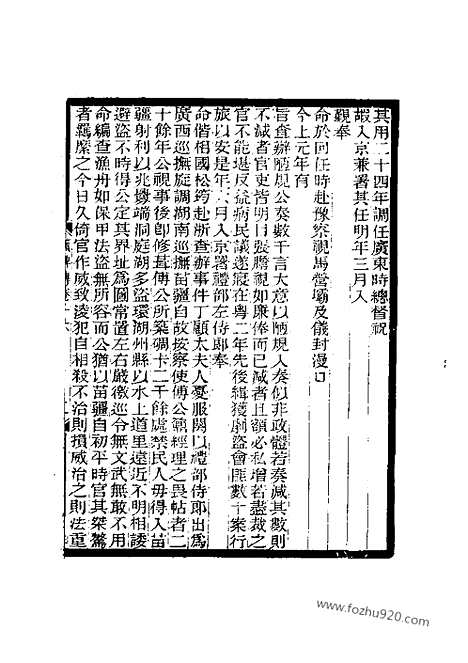 其用二十四年調任廣東時總督祝
嘏入京兼署其任明年三月入
覲奉
命於回任時赴豫察視馬營壩及儀封漫口
今上元年有
旨查辦陋規公奏數千言大意以陋規入奏似非政體若奏減其數則
不減者官吏皆明目張膽視如廉俸而已減者且額必私增若盡裁之
官不能堪反益病民議遂寢在粵二年先後緝獲劇盜會匪數十案行
旅以安是年六月入京署禮部左侍郎奉
命偕相國松筠赴浙查辦事件丁顧太夫人憂服闋以禮部侍郎出爲
廣西巡撫旋調湖南巡撫苗疆自故按察使傅公鼐經理之畏帖者二
十餘年公視事後卽修葺傅公所築碉卡二千餘處禁民人毋得入苗
疆射利以兆撥端洞庭湖多盜環湖州縣以水上道里遠近不明相諉
避盜不時得公定其界址爲圖常置左右嚴檄巡令無文武無敢不用
命編查漁舟如保甲法盜無所容而公猶以苗疆自初平時官其桀驁
者羈縻之今日久倚官作威致淩犯自相殺不治則損威治之則法重
www.fozhu920.com